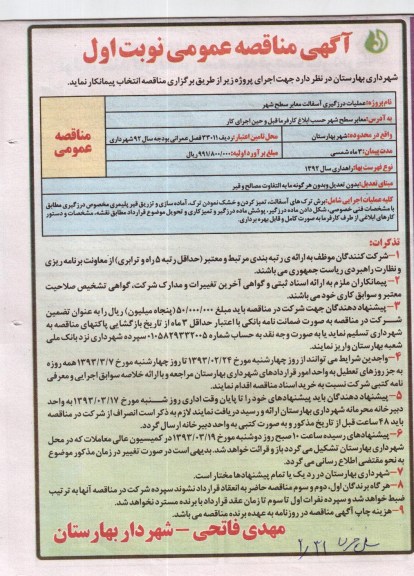 آگهی مناقصه عمومی نوبت اول
شهرداری بهارستان در نظر دارد جهت اجرای پروژه زیر از طریق برگزاری مناقصه انتخاب پیمانکار نماید.
نام پروژه: عملیات درزگیری آسفالت معابر سطح شهر
به آدرس: معابر سطح شهر حسب ابلاغ کارفرما قبل و حین اجرای کار
واقع در محدوده: شهر بهارستان
محل تامین اعتبار: ردیف ۳۳۰۱۱ فصل عمرانی بودجه سال ۹۲ شهرداری
مناقصه عمومی
مدت پیمان: ۳ ماه شمسی
مبلغ برآورد اولیه: ۹۹۱/۸۰۰/۰۰۰ ریال
نوع فهرست بها: راهداری سال ۱۳۹۲
مبنای تعدیل: بدون تعدیل و بدون هر گونه ما به التفاوت مصالح و قیر
کلیه عملیات اجرایی شامل: برش ترک های آسفالت، تمیز کردن و خشک نمودن ترک، آماده سازی و تزریق قیر پلیمری مخصوص درزگیری مطابق
با مشخصات فنی خصوصی، شکل دادن ماده درزگیر، پوشش ماده درزگیر و تمیزکاری و تحویل موضوع قرارداد مطابق نقشه، مشخصات و دستور
کارهای ابلاغی از طرف کارفرما به صورت کامل و قابل بهره برداری.
تذکرات:
۱- شرکت کنندگان موظف به ارائه ی رتبه بندی مرتبط و معتبر (حداقل رتبه ۵ راه و ترابری) از معاونت برنامه ریزی
و نظارت راهبردی ریاست جمهوری می باشند.
۲- پیمانکاران ملزم به ارائه اسناد ثبتی و گواهی آخرین تغییرات و مدارک شرکت، گواهی تشخیص صلاحیت
معتبر و سوابق کاری خود می باشند.
۳- پیشنهاد دهندگان جهت شرکت در مناقصه باید مبلغ ۵۰/۰۰۰/۰۰۰ (پنجاه میلیون) ریال را به عنوان تضمین
شرکت در مناقصه به صورت ضمانت نامه بانکی با اعتبار حداقل ۳ ماه از تاریخ بازگشایی پاکتهای مناقصه به
شهرداری تسلیم نماید یا به صورت وجه نقد به حساب شماره ۰۱۰۵۸۲۹۳۳۲۰۰۵ سپرده شهرداری نزد بانک ملی
شعبه بهارستان واریز نمایند.
۴- واجدین شرایط می توانند از روز چهارشنبه مورخ ۱۳۹۳/۰۲/۲۴ تا روز چهارشنبه مورخ ۱۳۹۳/۳/۷ همه روزه
به جز روزهای تعطیل به واحد امور قراردادهای شهرداری بهارستان مراجعه و با ارائه خلاصه سوابق اجرایی و معرفی
نامه کتبی شرکت نسبت به خرید اسناد مناقصه اقدام نمایند.
۵- پیشنهاد دهندگان باید پیشنهادهای خود را تا پایان وقت اداری روز شنبه مورخ ۱۳۹۳/۰۳/۱۷ به واحد
دبیرخانه محرمانه شهرداری بهارستان ارائه و رسید دریافت نمایند لازم به ذکر است انصراف از شرکت در مناقصه
باید ۴۸ ساعت قبل از تاریخ مذکور و به صورت کتبی به واحد دبیرخانه ارسال گردد.
۶- پیشنهادهای رسیده ساعت ۱۰ صبح روز دوشنبه مورخ ۱۳۹۳/۰۳/۱۹ در کمیسیون عالی معاملات که در محل
شهرداری بهارستان تشکیل می گردد باز و قرائت خواهد شد. بدیهی است در صورت تغییر در زمان مذکور موضوع
به نحو مقتضی اطلاع رسانی می گردد.
۷- شهرداری بهارستان در رد یک یا تمام پیشنهادها مختار است.
۸- هر گاه برندگان اول، دوم و سوم مناقصه حاضر به انعقاد قرارداد نشوند سپرده شرکت در مناقصه آنها به ترتیب
ضبط خواهد شد و سپرده نفرات اول تا سوم تا زمان عقد قرارداد با برنده مسترد نخواهد شد.
۹- هزینه چاپ آگهی مناقصه در روزنامه به عهده برنده مناقصه می باشد.
مهدی فاتحی - شهردار بهارستان
۲/۳۱